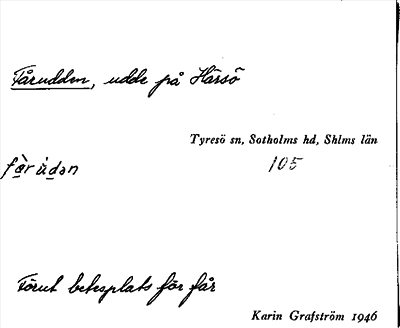 Fårudden, udde på Hårsö
Tyresö sn, Sotholms hd, Shlms län
fàr ùdən 105
Förut betesplats för får
Karin Grafström 1946